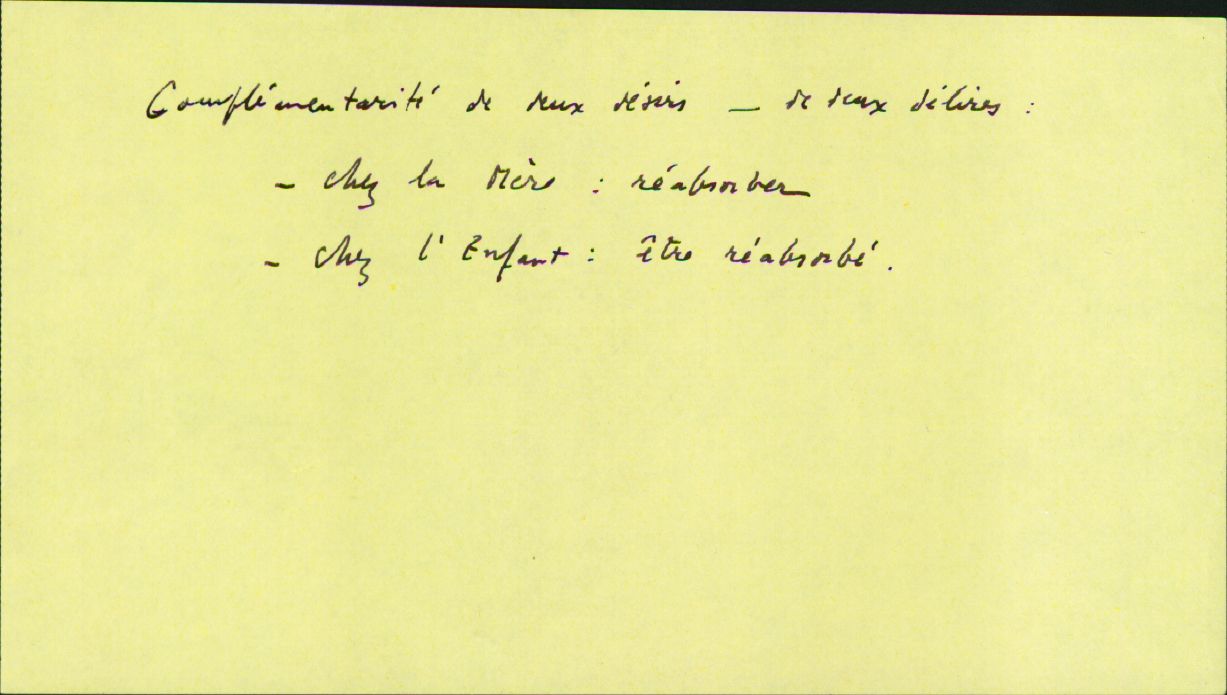 Complémentarité de deux désirs — de deux délires :
- chez la Mère : réabsorber
- chez l'Enfant : être réabsorbé.